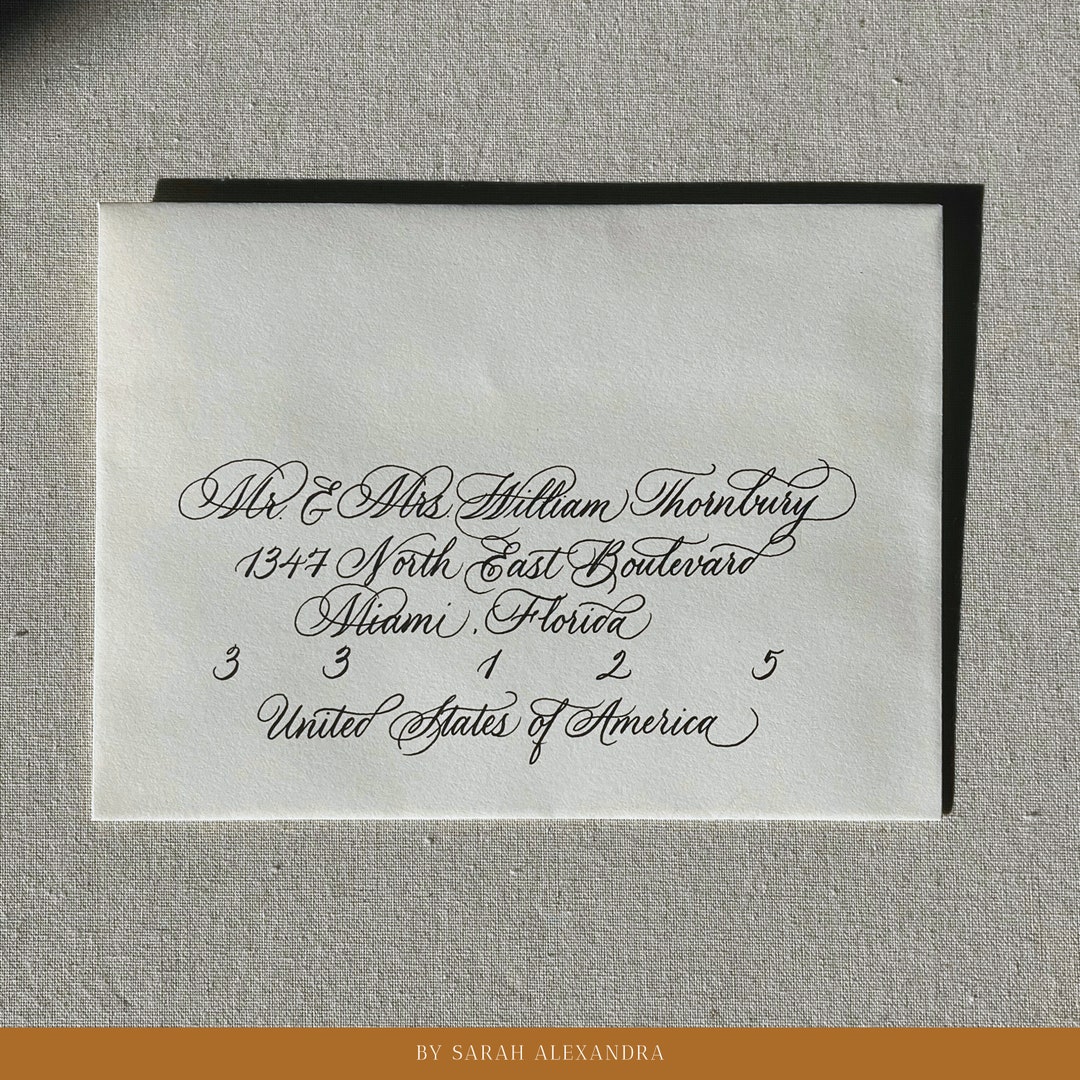 Mr. & Mrs. William Thornbury
1347 North East Boulevard
Miami, Florida
3 3 1 2 5
United States of America
BY SARAH ALEXANDRA